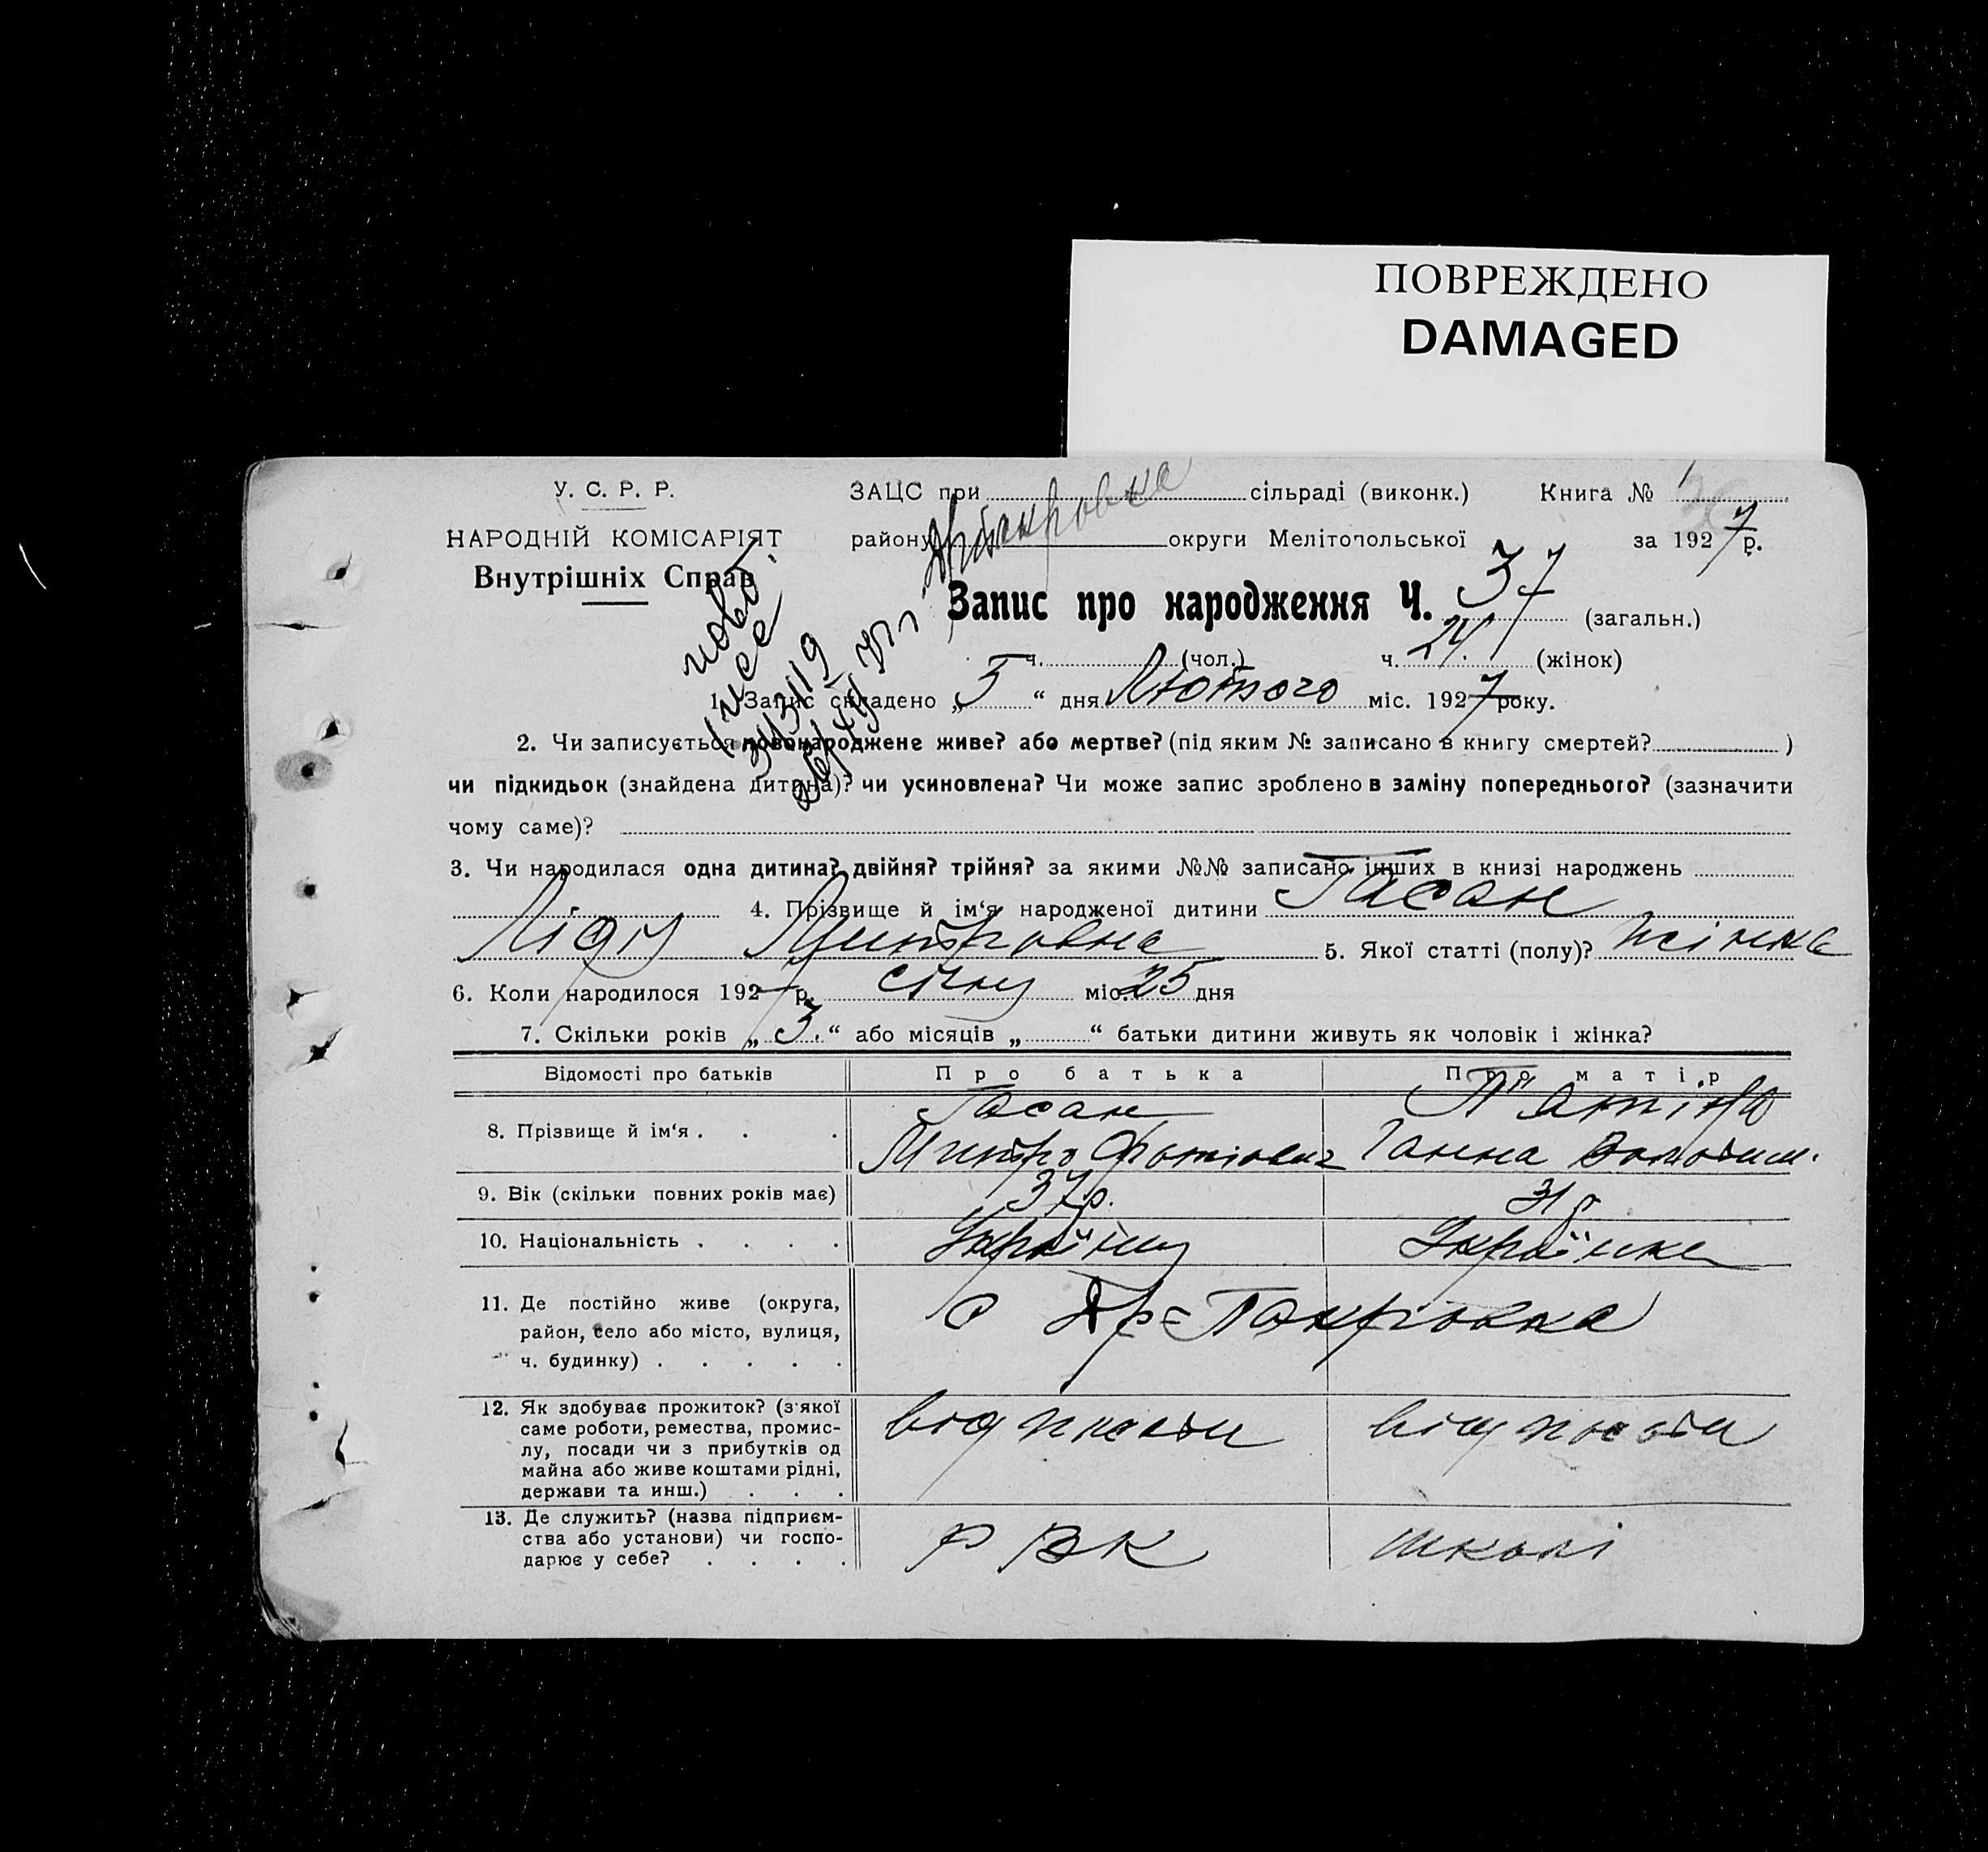 ПОВРЕЖДЕНО
DAMAGED
У. С. Р. Р.
НАРОДНІЙ КОМІСАРІЯТ
Внутрішніх Справ
ЗАЦС при сільраді (виконк.) Книга № 1
району округи Мелітопольської за 1927 р.
Запис про народження Ч. 37 (загальн.)
ч. (чол.) ч. 24. (жінок)
1. Запис складено „5“ дня Лютого міс. 1927 року.
2. Чи записується новонароджене живе? або мертве? (під яким № записано в книгу смертей? )
чи підкидьок (знайдена дитина)? чи усиновлена? Чи може запис зроблено в заміну попереднього? (зазначити
чому саме)?
3. Чи народилася одна дитина? двійня? трійня? за якими №№ записано інших в книзі народжень
4. Прізвище й ім'я народженої дитини Гасан
Лідія Митровна 5. Якої статті (полу)? жінка
6. Коли народилося 1927 р. січня міс. 25 дня
7. Скільки років „3.“ або місяців „ “ батьки дитини живуть як чоловік і жінка?
Відомості про батьків Про батька Про матір
8. Прізвище й ім'я . . . Гасан
Митро Ганна
9. Вік (скільки повних років має) 37 р. 31 р
10. Національність . . . . Українец Українка
11. Де постійно живе (округа,
район, село або місто, вулиця,
ч. будинку) . . . . .
с Покровка
12. Як здобуває прожиток? (з якої
саме роботи, ремества, промис-
лу, посади чи з прибутків од
майна або живе коштами рідні,
держави та инш.) . . .
від посади від посади
13. Де служить? (назва підприєм-
ства або установи) чи госпо-
дарює у себе? . . . .
РВК школі